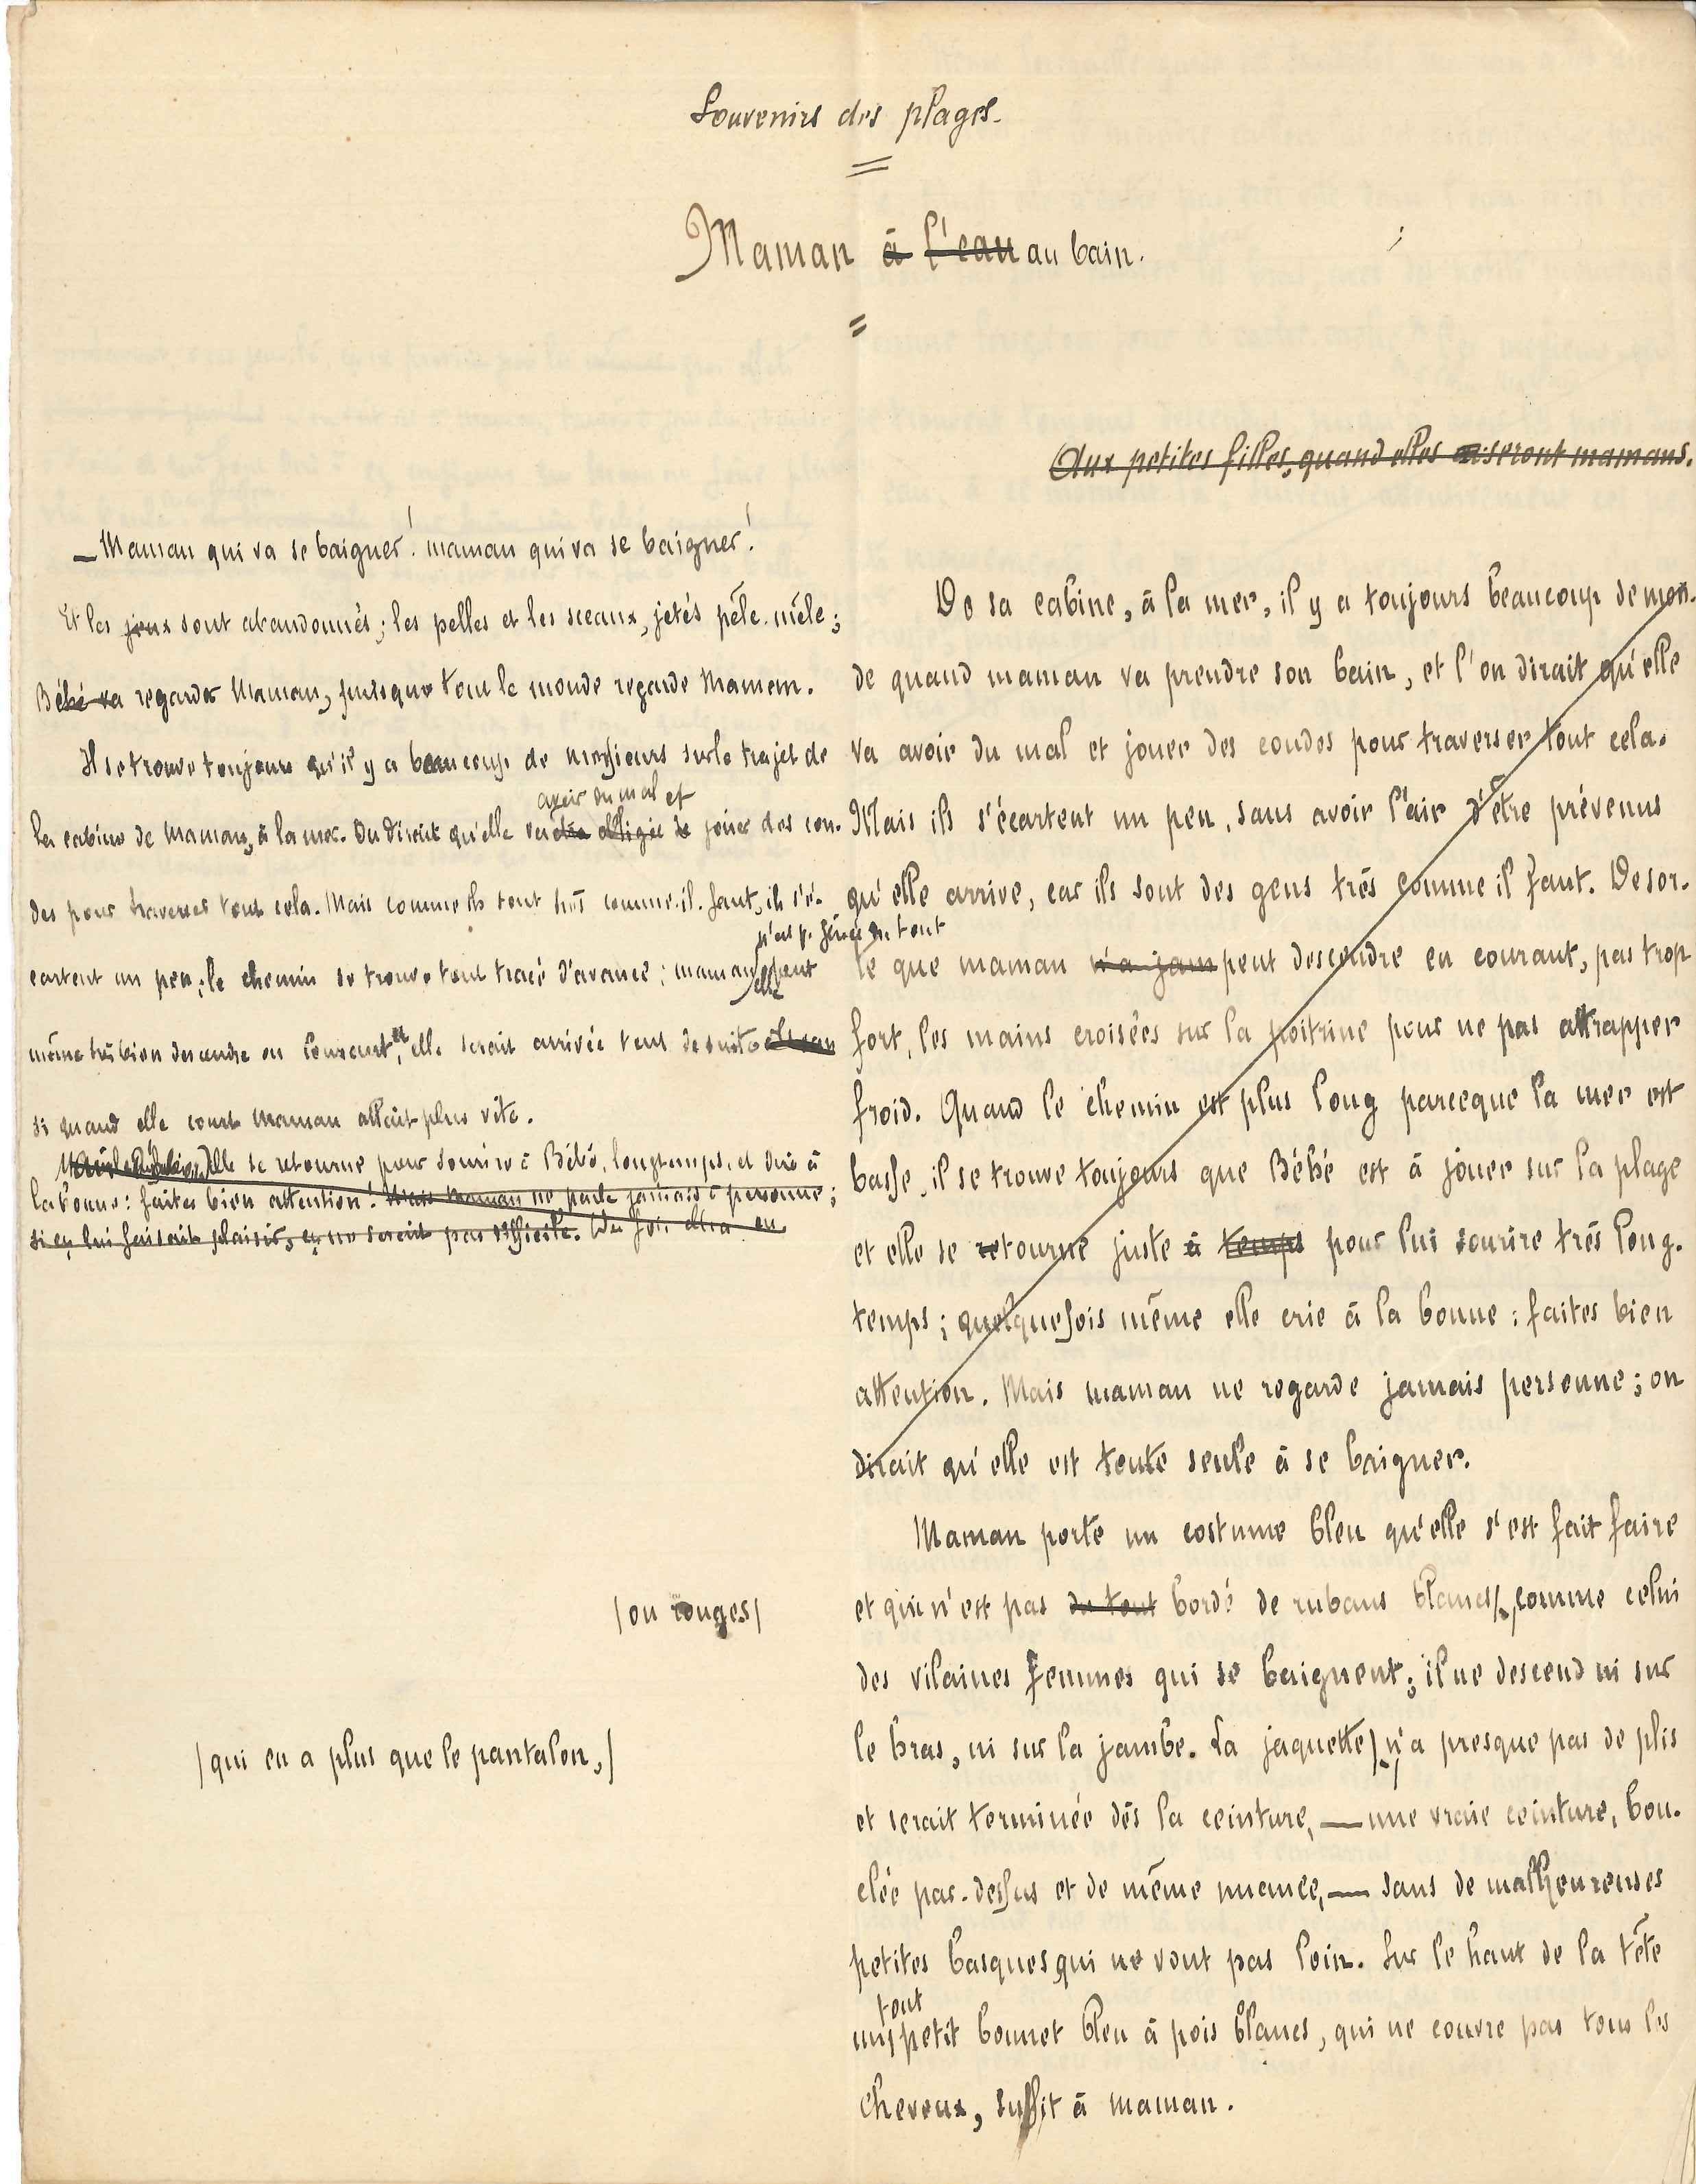 Souvenirs des plages.
Maman à l'eau au bain.
Aux petites filles, quand elles seront mamans.
— Maman qui va se baigner! maman qui va se baigner!
Et les jeux sont abandonnés; les pelles et les sceaux, jetés pêle-mêle;
Bébé va regarder Maman, puisque tout le monde regarde Maman.
Il se trouve toujours qu'il y a beaucoup de messieurs sur le trajet de
la cabine de Maman, à la mer. On dirait qu'elle va être obligée de jouer des cou-
avoir du mal et
des pour traverser tout cela. Mais comme ils sont très comme-il-faut, ils s'é-
cartent un peu; le chemin se trouve tout tracé d'avance; maman peut
n'est p. gênée du tout
elle
même très bien descendre en courant, et elle serait arrivée tout de suite
si quand elle court Maman allait plus vite.
Elle se retourne pour sourire à Bébé, longtemps, et dire à
la bonne: faites bien attention! Mais Maman ne parle jamais à personne;
si ça lui faisait plaisir, ça ne serait pas difficile.
(ou rouges)
(qui en a plus que le pantalon,)
De sa cabine, à la mer, il y a toujours beaucoup de mon-
de quand maman va prendre son bain, et l'on dirait qu'elle
va avoir du mal et jouer des coudes pour traverser tout cela.
Mais ils s'écartent un peu, sans avoir l'air d'être prévenus
qu'elle arrive, car ils sont des gens très comme il faut. De sor-
te que maman n'a jam peut descendre en courant, pas trop
fort, les mains croisées sur la poitrine pour ne pas attrapper
froid. Quand le chemin est plus long parceque la mer est
basse, il se trouve toujours que Bébé est à jouer sur la plage
et elle se retourne juste à temps pour lui sourire très long-
temps; quelquefois même elle crie à la bonne: faites bien
attention. Mais maman ne regarde jamais personne; on
dirait qu'elle est toute seule à se baigner.
Maman porte un costume bleu qu'elle s'est fait faire
et qui n'est pas du tout bordé de rubans blancs, comme celui
des vilaines femmes qui se baignent; il ne descend ni sur
le bras, ni sur la jambe. La jaquette n'a presque pas de plis
et serait terminée dès la ceinture, — une vraie ceinture, bou-
clée par-dessus et de même nuance, — sans de malheureuses
petites basques qui ne vont pas loin. Sur le haut de la tête
tout
un petit bonnet bleu à pois blancs, qui ne couvre pas tous les
cheveux, suffit à maman.